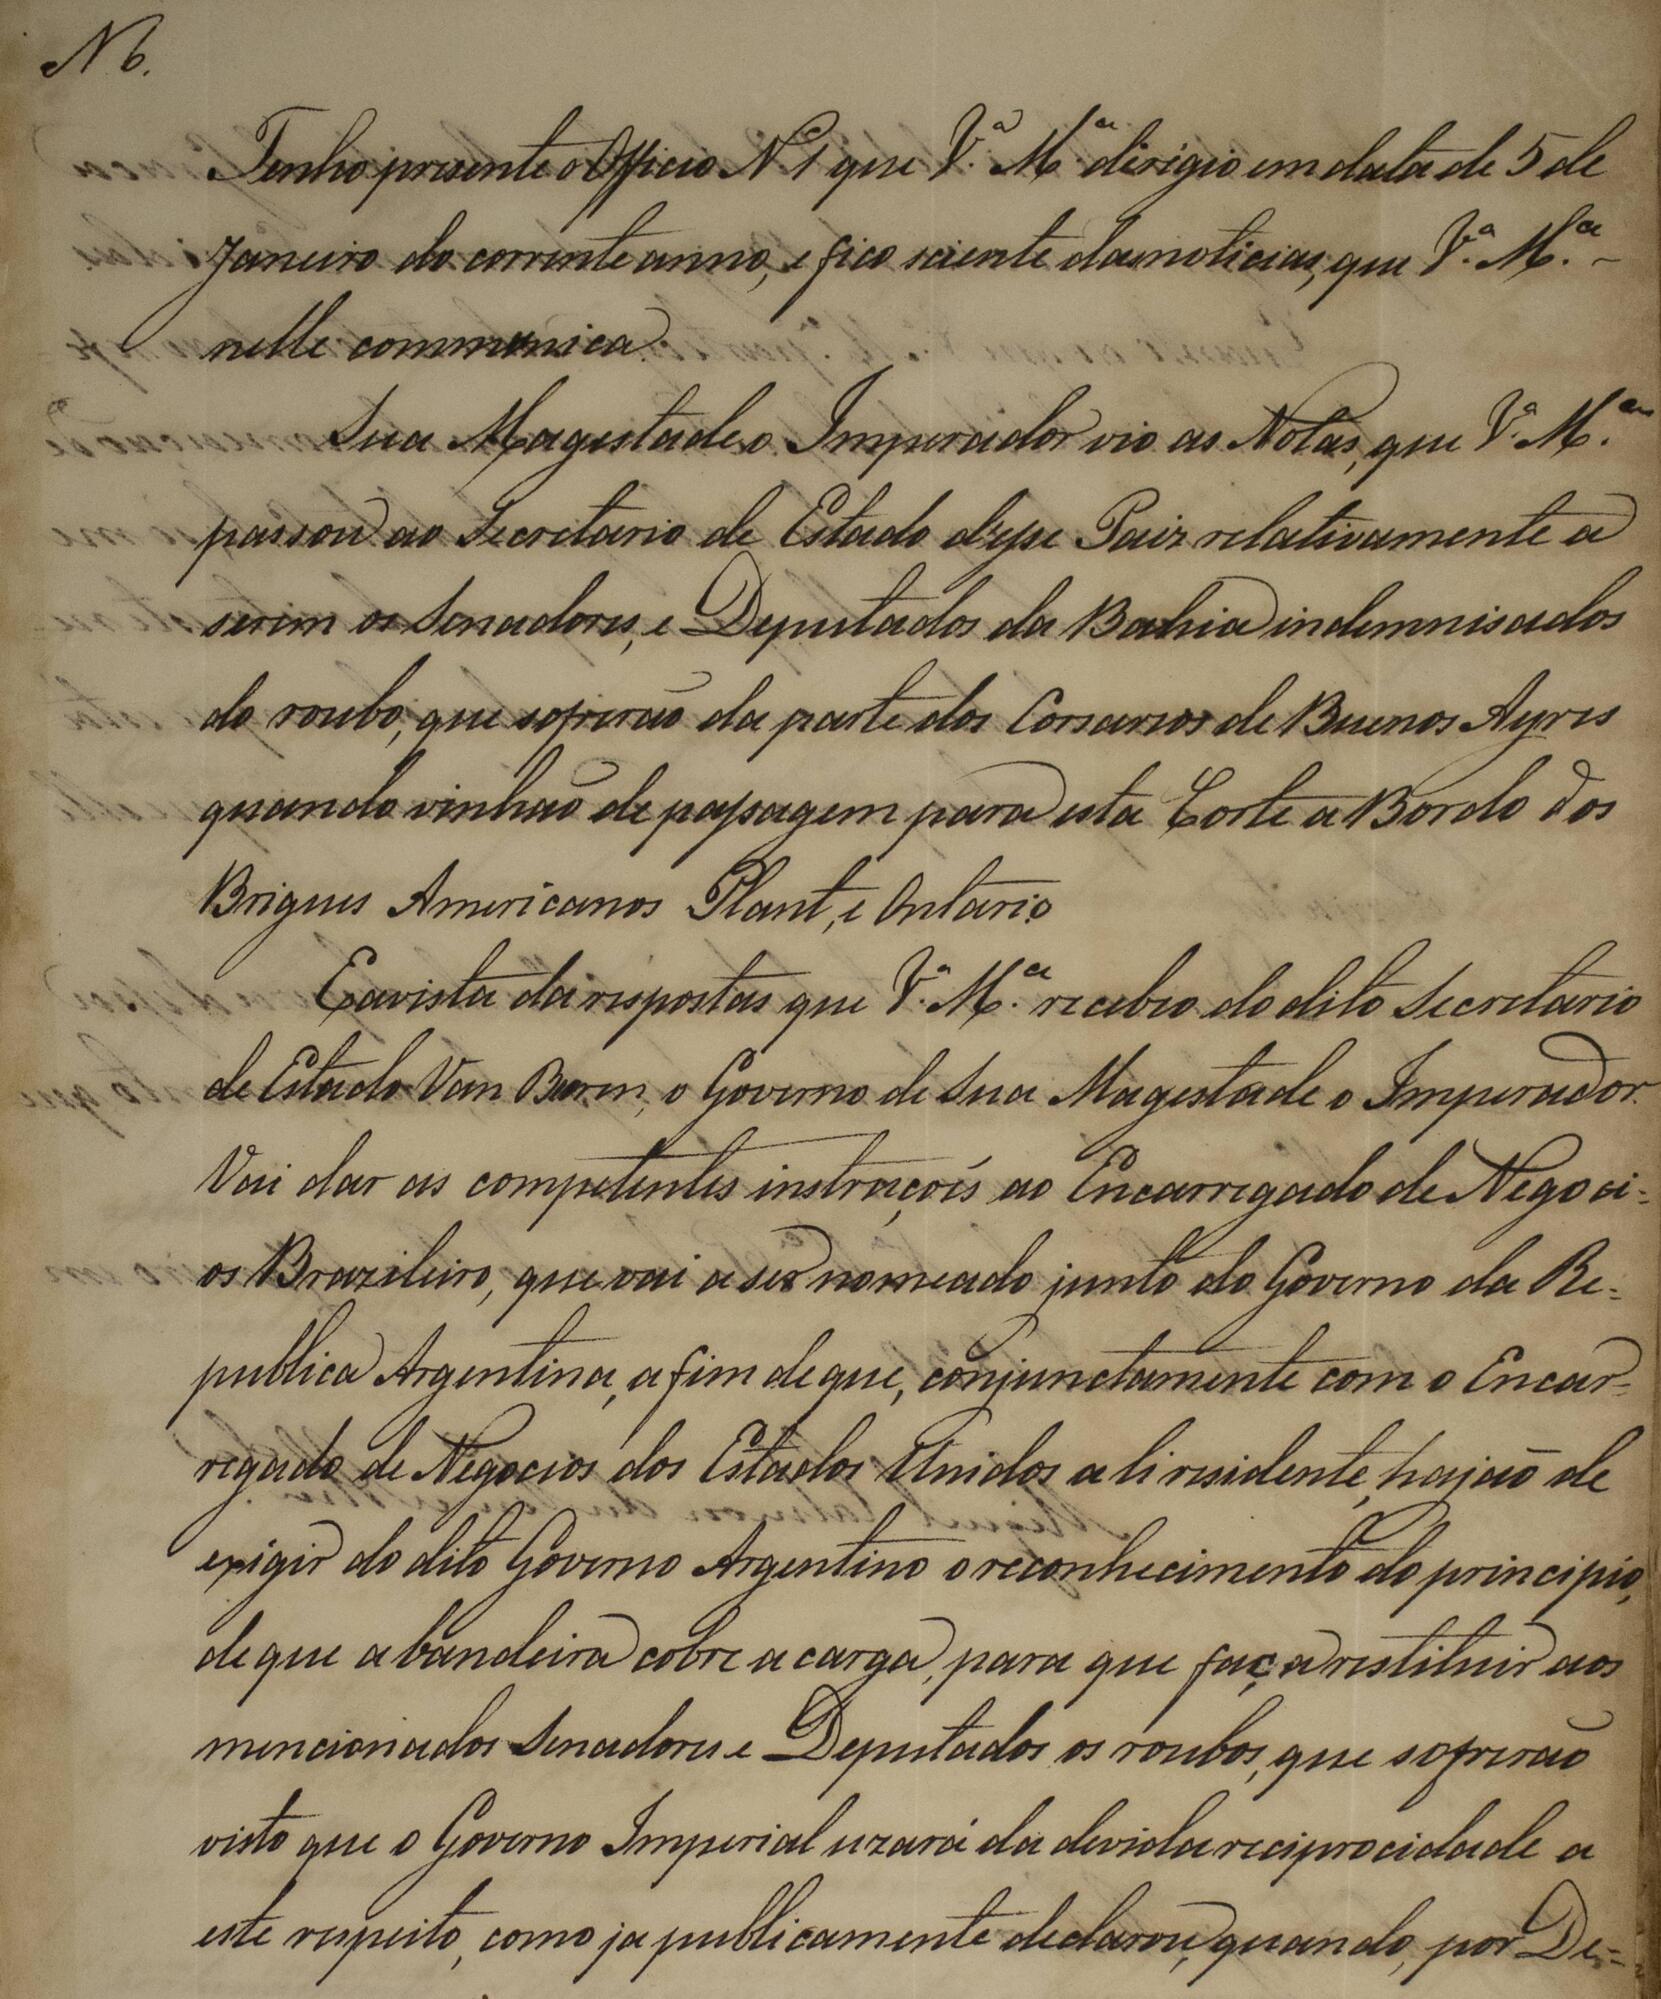 N 6.
Tenho presente o Officio N 1 que V.ª M.ᶜᵉ dirigio em data de 5 de
Janeiro do corrente anno, e fico sciente das noticias, que V.ª M.ᶜᵉ -
nelle communica.
Sua Magestade o Imperador vio as Notas, que V.ª M.ᶜᵉ
passou ao Secretario de Estado desse Paiz relativamente a
serem os Senadores, e Deputados da Bahia indemnisados
do roubo, que sofrerão da parte dos Corsarios de Buenos Ayres
quando vinhão de passagem para esta Corte a Bordo dos
Brigues Americanos Plant, e Ontario
Eavista da respostas que V.ª M.ᶜᵉ recebeo do dito Secretario
de Estado Van Buren, o Governo de Sua Magestade o Imperador
Vai dar as competentes instrucçoẽs ao Encarregado de Negoci-
os Brazileiro, que vai a ser nomeado junto do Governo da Re-
publica Argentina, a fim de que, conjunctamente com o Encar-
regado de Negocios dos Estados Unidos ali residente, hajão de
exigir do dito Governo Argentino o reconhecimento do principio,
de que a bandeira cobre a carga, para que faça restituir aos
mencionados Senadores e Deputados os roubos, que sofrerão
visto que o Governo Imperial uzará da devida reciprocidade a
este respeito, como ja publicamente declarou, quando, por De-